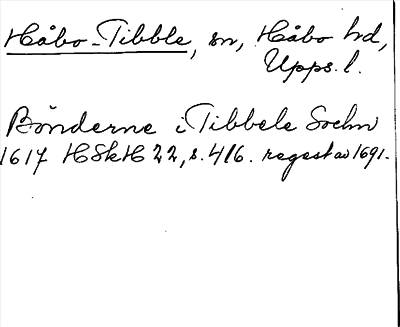 Håbo-Tibble, sn, Håbo hd,
Upps. l.
Bönderne i Tibbele Sochn
1617 HSkH 22, s. 416. regest av 1691.